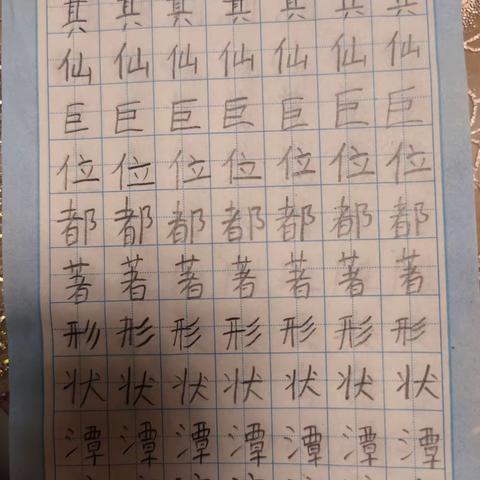 其 其 其 其 其 其 其
仙 仙 仙 仙 仙 仙 仙
巨 巨 巨 巨 巨 巨 巨
位 位 位 位 位 位 位
都 都 都 都 都 都 都
著 著 著 著 著 著 著
形 形 形 形 形 形 形
状 状 状 状 状 状 状
潭 潭 潭 潭 潭 潭 潭